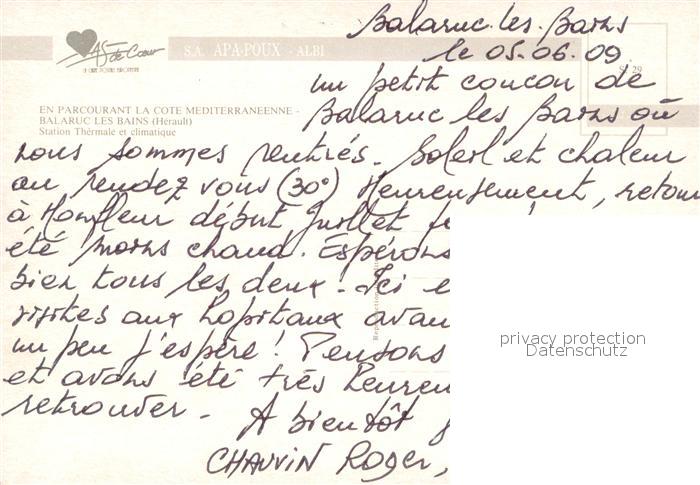 Balaruc-les-Bains
le 05-06.09
As de Coeur
S.A. APA-POUX - ALBI
un petit coucou de
EN PARCOURANT LA COTE MEDITERRANEENNE -
BALARUC LES BAINS (Hérault)
Station Thérmale et climatique
Balaruc les Bains où
nous sommes rentrés. Soleil et chaleur
au rendez vous (30°) Heureusement, retour
à Honfleur début Juillet
été moins chaud. Espérons
bien tous les deux! Ici
visites aux hopitaux avan
un peu j'espère! Pensons
et avons été très heureu
retrouver - A bientôt
CHAUVIN Roger,
privacy protection
Datenschutz